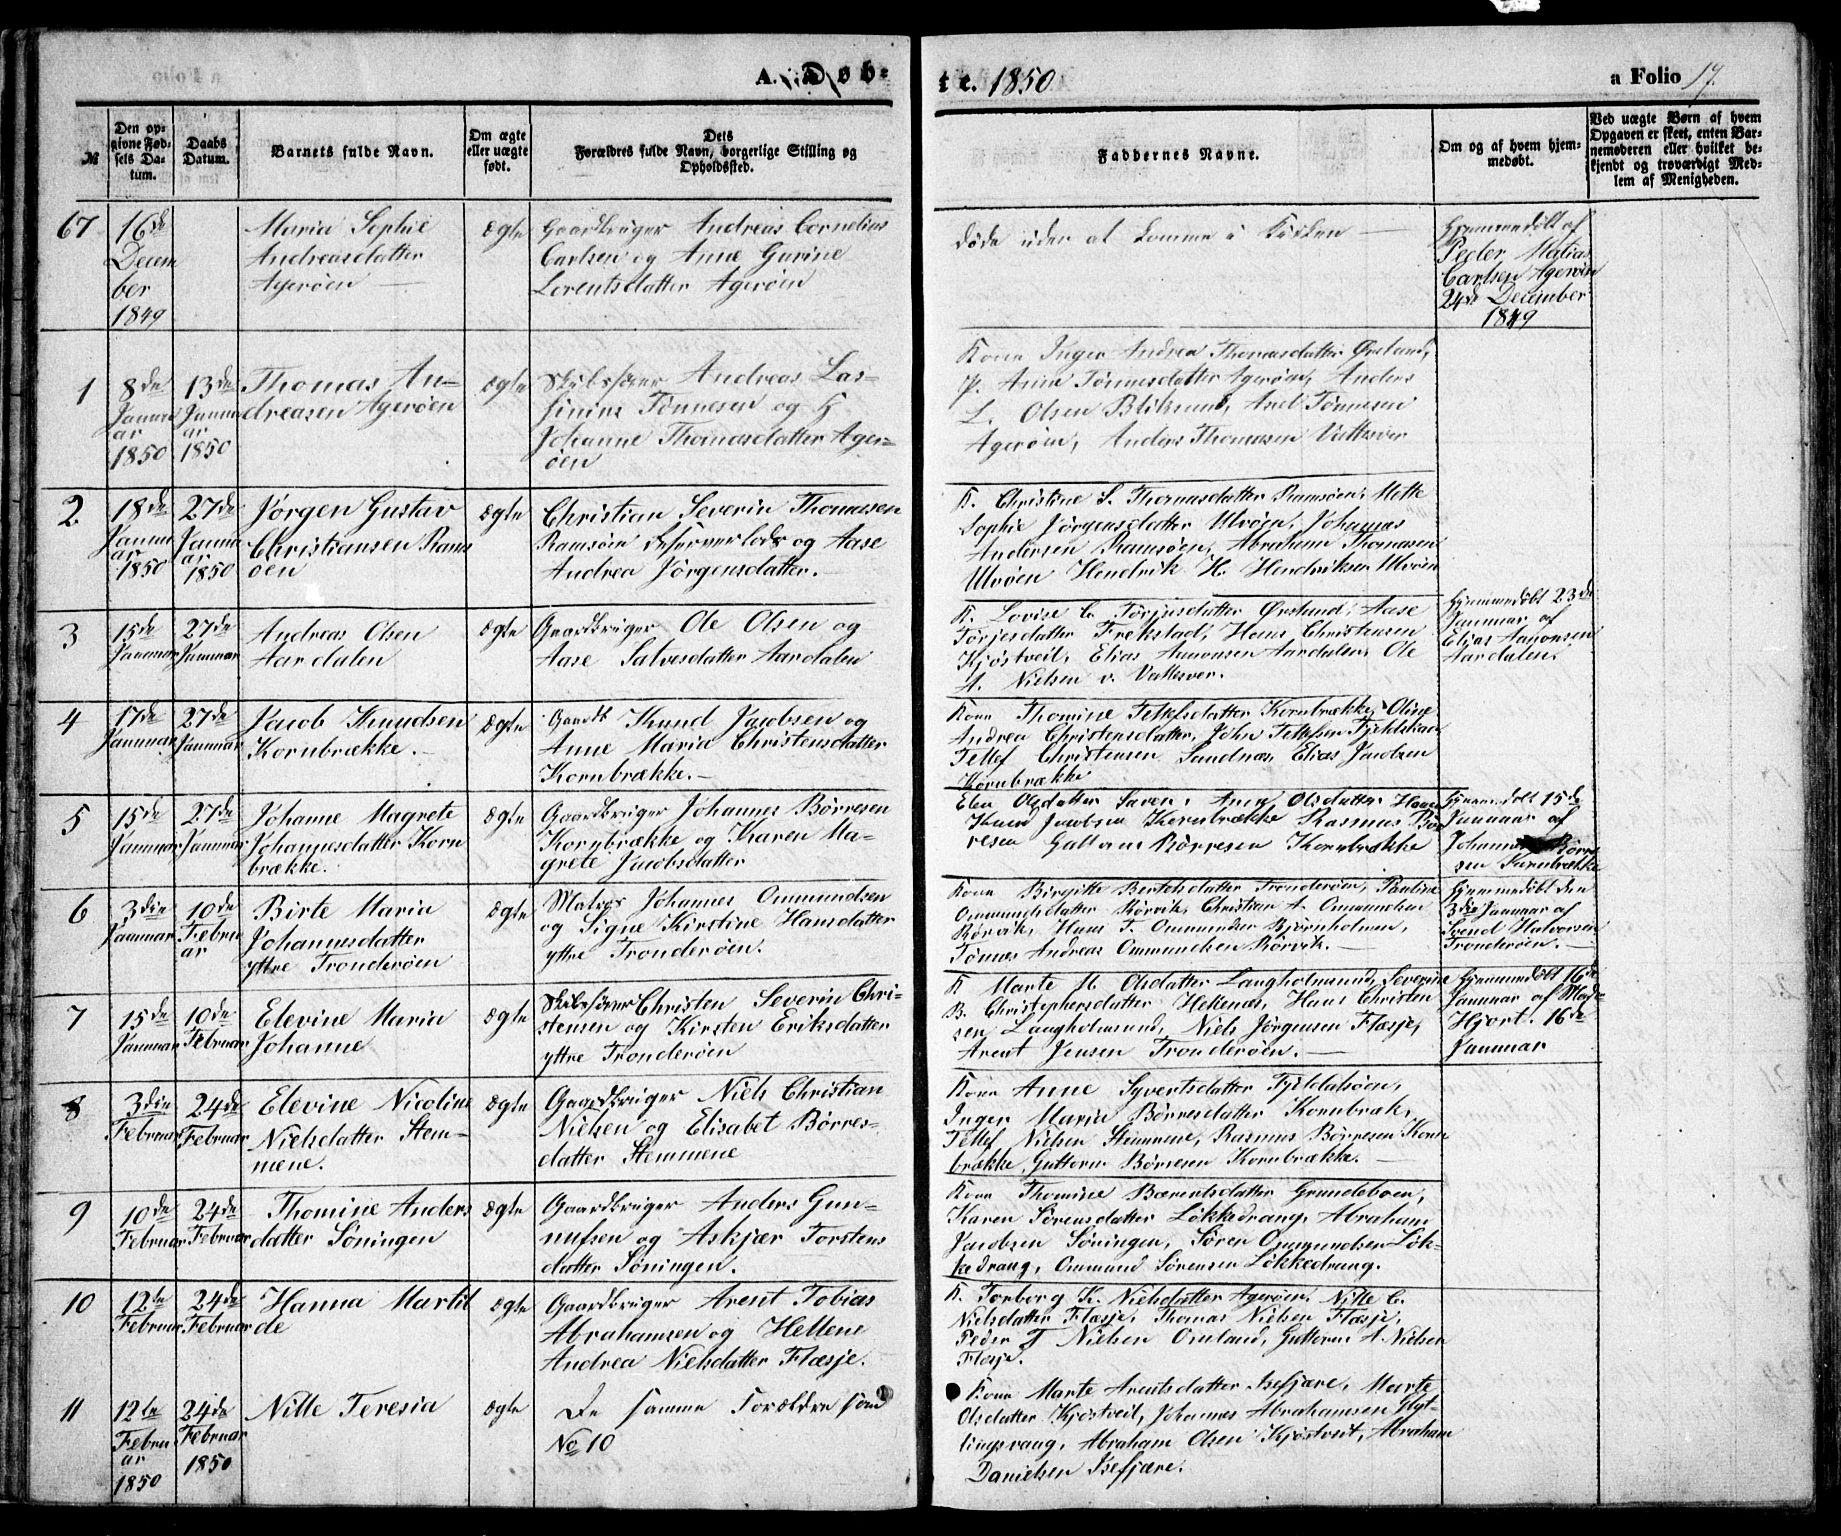 A. Døb-
te. 1850
a Folio 17.
№
Den op-
givne Fød-
sels Da-
tum.
Daabs
Datum.
Barnets fulde Navn.
Om ægte
eller uægte
født.
Dets
Forældres fulde Navn, borgerlige Stilling og
Opholdssted.
Faddernes Navne.
Om og af hvem hjem-
medøbt.
Ved uægte Børn af hvem
Opgaven er skeet, enten Bar-
nemoderen eller hvilket be-
kjendt og troværdigt Med-
lem af Menigheden.
67
16de
Decem
ber
1849
Maria Sophie
Andreasdatter
Agerøen
ægte
Gaardbruger Andreas Cornelius
Carlsen og Anne Gurine
Lorentsdatter Agerøen
døde uden at komme i Kirken
Hjemmedøbt af
Peder Matias
Carlsen Agerøen
24de December
1849
1
8de
Janu
ar
1850
13de
Janu
ar
1850
Thomas An-
dreasen Agerøen
ægte
Skibsfører Andreas Las-
sinius Tønnesen og H
Johanne Thomasdatter Ager-
øen
Kone Inger Andrea Thomasdatter Ørsland,
P. Anne Tønnesdatter Agerøen, Anders
L. Olsen Bliksund, Axel Tønnesen
Agerøen, Anders Thomasen Vattesver
2
18de
Janu
ar
1850
27de
Janu
ar
1850
Jørgen Gustav
Christiansen Rams
øen
ægte
Christian Severin Thomasen
Ramsøen og Aase
Andrea Jørgensdatter.
K. Christine S. Thomasdatter Ramsøen, Mette
Sophie Jørgensdatter Ulvøen, Johannes
Andersen Ramsøen, Abraham Thomasen
Ulvøen Hendrik H. Hendriksen Ulvøen
3
15de
Januar
27de
Januar
Andreas Olsen
Aardalen
ægte
Gaardbruger Ole Olsen og
Aase Salvesdatter Aardalen
K. Lovise C. Torjusdatter Ørsland, Aase
Torjesdatter Trekstad, Hans Christensen
Kjøstveit, Elias Aanonsen Aardalen, Ole
A. Nielsen v. Vattesver.
Hjemmedøbt 23de
Januar af
Elias Aanonsen
Aardalen.
4
17de
Januar
27de
Januar
Jacob Knudsen
Kornbrække.
ægte
Gaardb Knud Jacobsen og
Anne Maria Christensdatter
Kornbrække.
Kone Thomine Tellefsdatter Kornbrække, Oline
Andrea Christensdatter, John Tellefsen
Tellef Christensen Sandnes, Elias Jacobsen
Kornbrække
5
15de
Januar
27de
Januar
Johanne Magrete
Johannesdatter Korn
brække.
ægte
Gaardbruger Johannes Børresen
Kornbrække og Karen Ma-
grete Jacobsdatter
Elen Olsdatter Anne Olsdatter
Knud Jacobsen Kornbrække Rasmus Bør
resen Guttorm Børresen Kornbrække
Hjemmedøbt 15de
Januar af
Johannes Børre
sen Kornbrække
6
3die
Januar
10de
Febru
ar
Birte Maria
Johannesdatter
yttre Tronderøen
ægte
Matros Johannes Ommundsen
og Signe Kirstine Hansdatter
yttre Tronderøen.
Kone Birgitte Bertelsdatter Tronderøen, Pauline
Ommundsdatter Rørvik, Christian A. Ommundsen
Rørvik, Hans T. Ommundsen Bjørnholmen,
Tønnes Andreas Ommundsen Rørvik.
Hjemmedøbt den
3die Januar af
Svend Halvorsen
Tronderøen.
7
15de
Januar
10de
Februar
Elevine Maria
Johanne
ægte
Skibsfører Christen Severin Chri-
stensen og Kirsten Eriksdatter
yttre Tronderøen
K Marte M Olsdatter Langholmsund, Severine
B. Christophersdatter Hekenæs, Hans Christen
sen Langholmsund, Niels Jørgensen Flasje,
Arent Jensen Tronderøen.
Hjemmedøbt 16de
Januar af Mad-
Hjort. 16de
Januar
8
3die
Februar
24de
Februar
Elevine Nicoline
Nielsdatter Stem-
mene.
ægte
Gaardbruger Niels Christian
Nielsen og Elisabet Børres-
datter Stemmene
Kone Anne Syvertsdatter Fjeldalsøen,
Inger Maria Børresdatter Kornbræk,
Tellef Nielsen Stemmene, Rasmus Børresen Korn
brække, Guttorm Børresen Kornbrække.
9
10de
Februar
24de
Februar
Thomine Anders
datter Søningen
ægte
Gaardbruger Anders Gun-
nufsen og Askjær Torstens
datter Søningen.
Kone Thomine Bærentsdatter Grundeboen,
Karen Sørensdatter Løkkedrang, Abraham
Jacobsen Søningen, Søren Ommundsen Løk-
kedrang, Ommund Sørensen Løkkedrang.
10
12te
Februar
24de
Februar
Hanna Martil
de
ægte
Gaardbruger Arent Tobias
Abrahamsen og Hellene
Andrea Nielsdatter Flæsje.
K. Torborg K. Nielsdatter Agerøen, Nille C.
Nielsdatter Flæsje, Thomas Nielsen Flæsje,
Peder T Nielsen Omland, Guttorm A. Nielsen
Flæsje.
11
12te
Febru
ar
1850
24de
Februar
1850
Nille Teresia
ægte
De samme Forældre som
No 10
Kone Marte Arentsdatter Isefjære, Marte
Olsdatter Kjøstveit, Johannes Abrahamsen Glyt-
tingsvang, Abraham Olsen Kjøstveit, Abraham
Danielsen Isefjære.